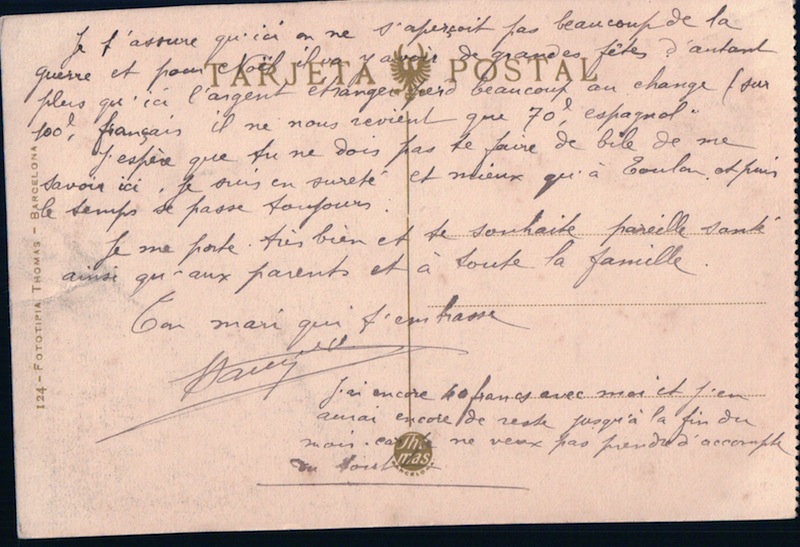 Je t'assure qu'ici on ne s'aperçoit pas beaucoup de la
guerre et pour Noël il va y avoir de grandes fêtes d'autant
TARJETA POSTAL
plus qu'ici l'argent etranger perd beaucoup au change (sur
100f français il ne nous revient que 70f espagnol.
J'espère que tu ne dois pas te faire de bile de me
savoir ici. Je suis en sureté et mieux qu'à Toulon, et puis
le temps se passe toujours.
Je me porte très bien et te souhaite pareille santé
ainsi qu'aux parents et à toute la famille.
Ton mari qui t'embrasse
J'ai encore 40 francs avec moi et j'en
aurai encore de reste jusqu'à la fin du
mois. car ne veux pas prendre d'accompte
124 - FOTOTIPIA THOMAS - BARCELONA
Thomas
BARCELONA